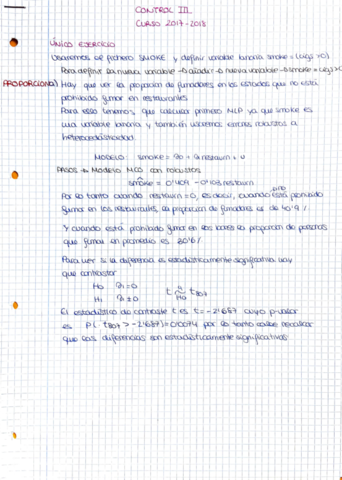 CONTROL III
CURSO 2017-2018
ÚNICO EJERCICIO
Usaremos el fichero SMOKE y definir variable binaria smoke = (cigs >0)
Para definir la nueva variable → añadir → nueva variable → smoke = cigs>0
PROPORCIONAL Hay que ver la proporción de fumadores en los estados que no está
prohibido fumar en restaurantes
Para eso tenemos que calcular primero MLP ya que smoke es
una variable binaria y también usaremos errores robustos a
heterocedasticidad.
MODELO: smoke = β0 + β1 restaurn + u
PASOS → Modelo MCO con robustos
smoke = 0'409 - 0'103 restaurn
Por lo tanto cuando restaurn = 0, es decir, cuando no está prohibido
fumar en los restaurantes, la proporción de fumadores es de 40'9%
Y cuando está prohibido fumar en los bares la proporción de personas
que fuman en promedio es 30'6%
Para ver si la diferencia es estadísticamente significativa hay
que contrastar
H0 β1 = 0
H1 β1 ≠ 0
t ~ t807
H0
El estadístico de contraste t es t = -2'687 cuyo p-valor
es P( t807 > -2'687) = 0'0074 por lo tanto cabe rechazar
que las diferencias son estadísticamente significativas